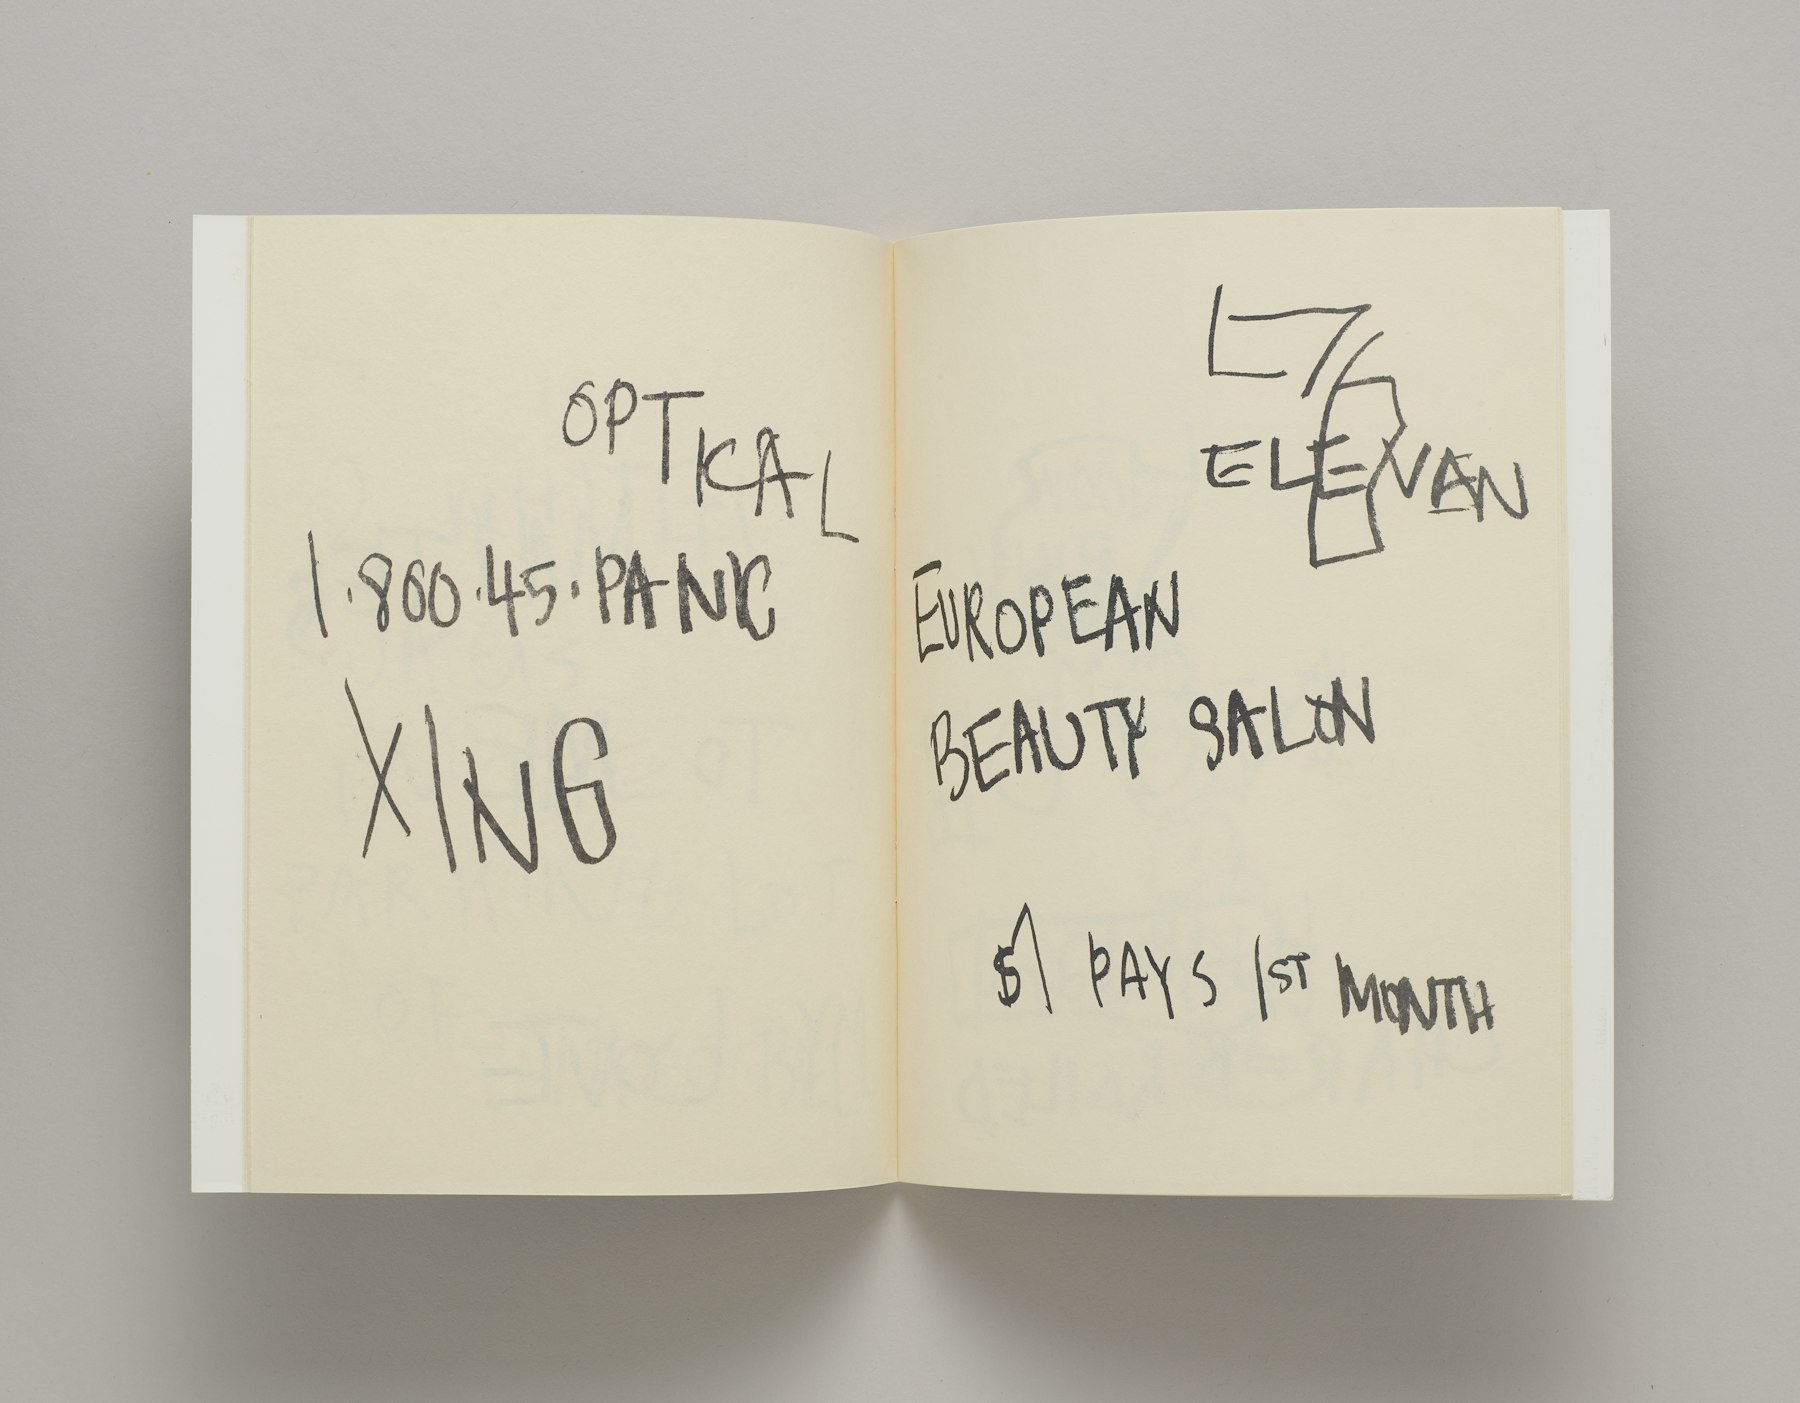 OPTICAL
1·800·45·PANIC
XING
7
ELEVAN
EUROPEAN
BEAUTY SALON
$1 PAYS 1ST MONTH